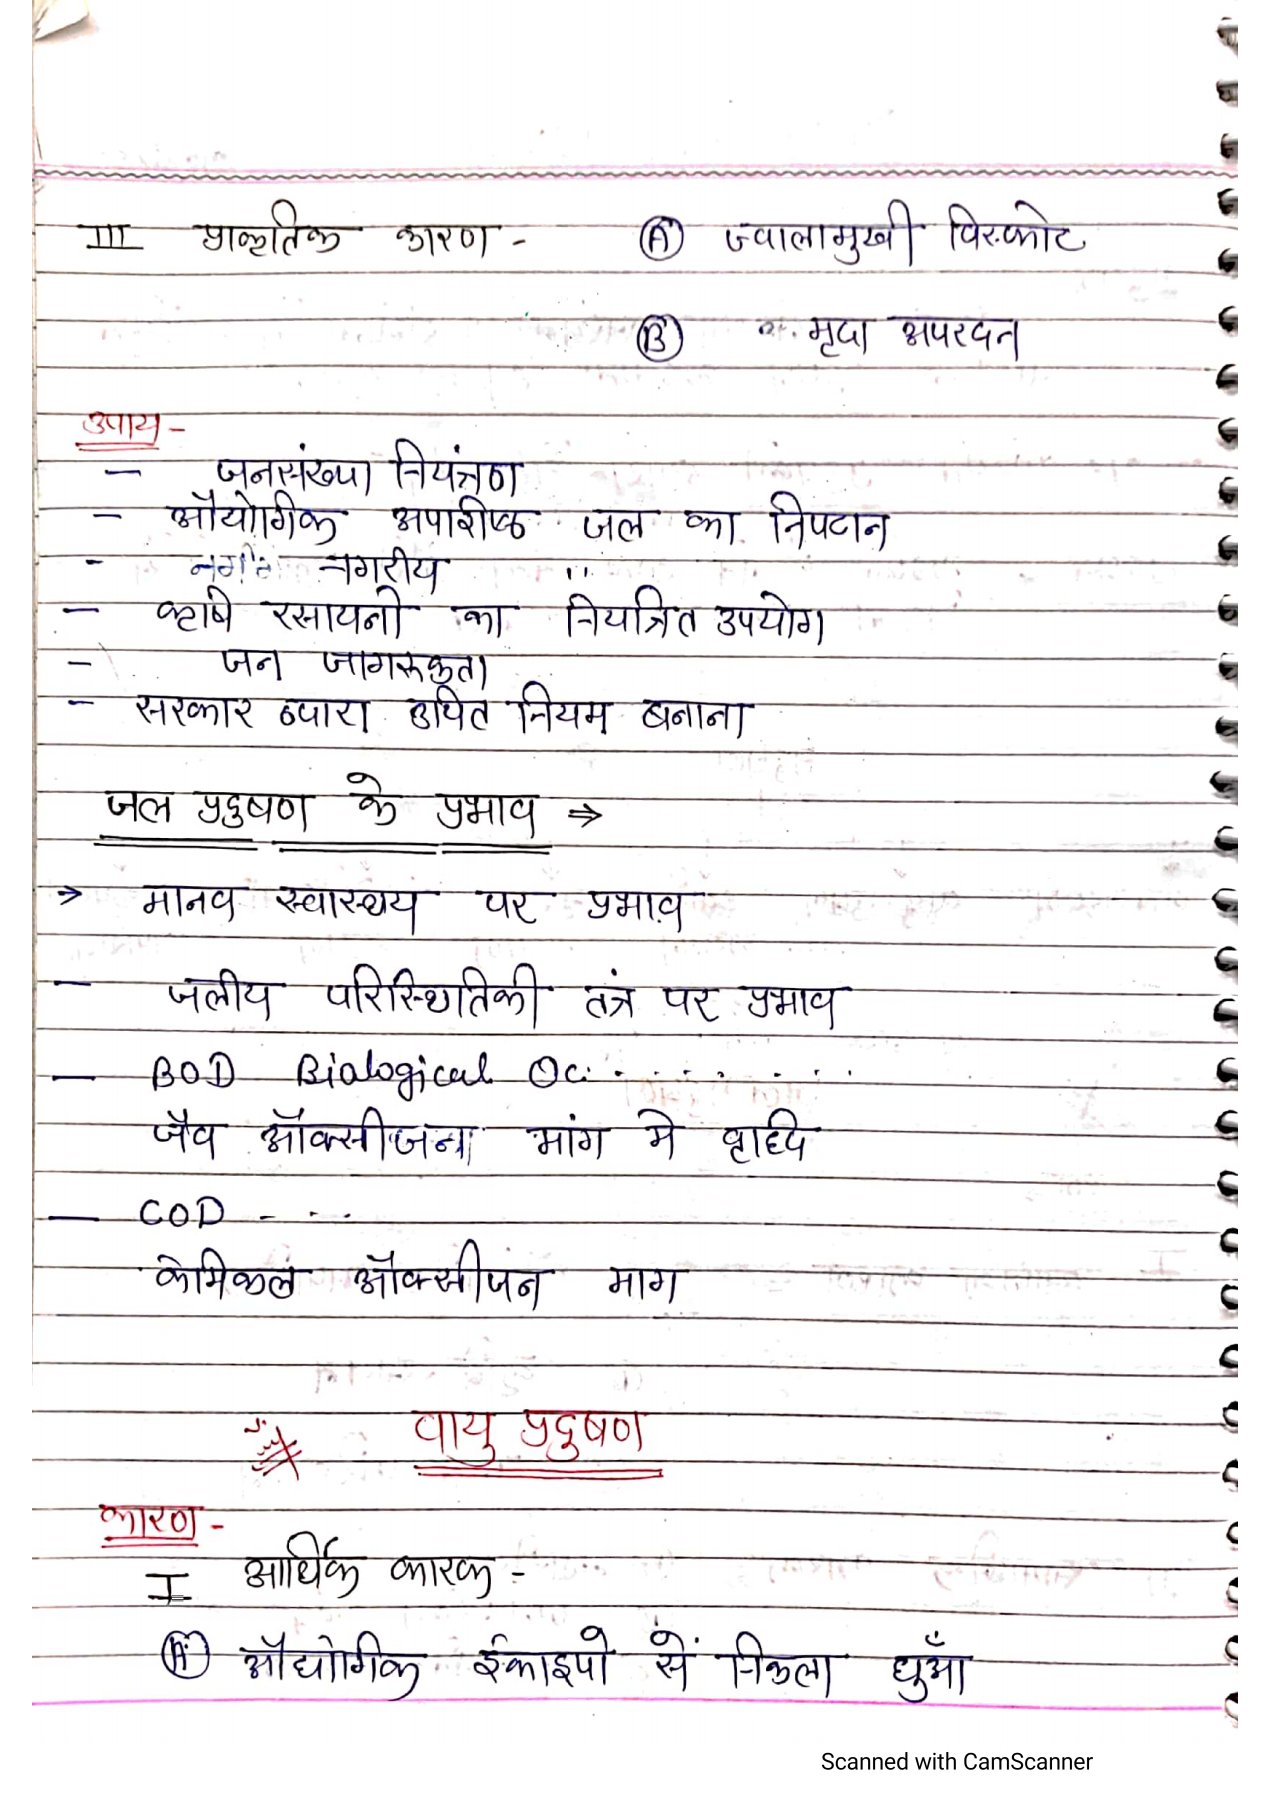 III प्राकृतिक कारण - (A) ज्वालामुखी विस्फोट
(B) मृदा अपरदन
उपाय -
— जनसंख्या नियंत्रण
— औद्योगिक अपशिष्ठ जल का निपटान
- नगरीय "
— कृषि रसायनो का नियत्रित उपयोग
- जन जागरूकता
- सरकार द्वारा उचित नियम बनाना
जल प्रदुषण के प्रभाव ⇒
→ मानव स्वास्थय पर प्रभाव
— जलीय परिस्थितिकी तंत्र पर प्रभाव
— BOD Biological Oc. . . . . . . .
जैव ऑक्सीजन मांग मे वृद्धि
— COD - . . .
केमिकल ऑक्सीजन माग
वायु प्रदुषण
कारण -
I आर्थिक कारक -
(A) औद्योगिक ईकाइयो से निकला धुआँ
Scanned with CamScanner